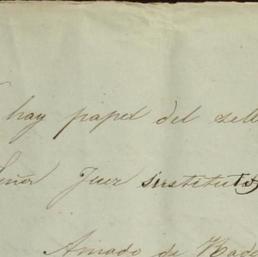 hay papel del sell
Señor Juez sustituto
Amado de